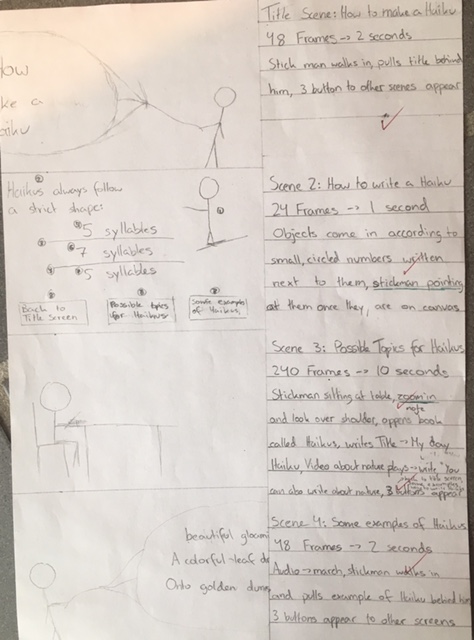 Title Scene: How to make a Haiku
48 Frames → 2 seconds
Stick man walks in, pulls title behind
him, 3 button to other scenes appear
How
ke a
iku
Scene 2: How to write a Haiku
24 Frames → 1 second
Objects come in according to
small, circled numbers written
next to them, stickman pointing
at them once they are on canvas
Haikus always follow
a strict shape:
5 syllables
7 syllables
5 syllables
Back to
Title Screen
Possible topics
for Haikus
Some examples
of Haikus
Scene 3: Possible Topics for Haikus
240 Frames → 10 seconds
Stickman sitting at table, zoom in
note
and look over shoulder, oppens book
called Haikus, writes Title → My day
Haiku, Video about nature plays → write, "You
can also write about nature, 3 buttons appear
Scene 4: Some examples of Haikus
48 Frames → 2 seconds
Audio → march, stickman walks in
and pulls example of Haiku behind him
3 buttons appear to other screens
beautiful
A colorful leaf
Onto golden